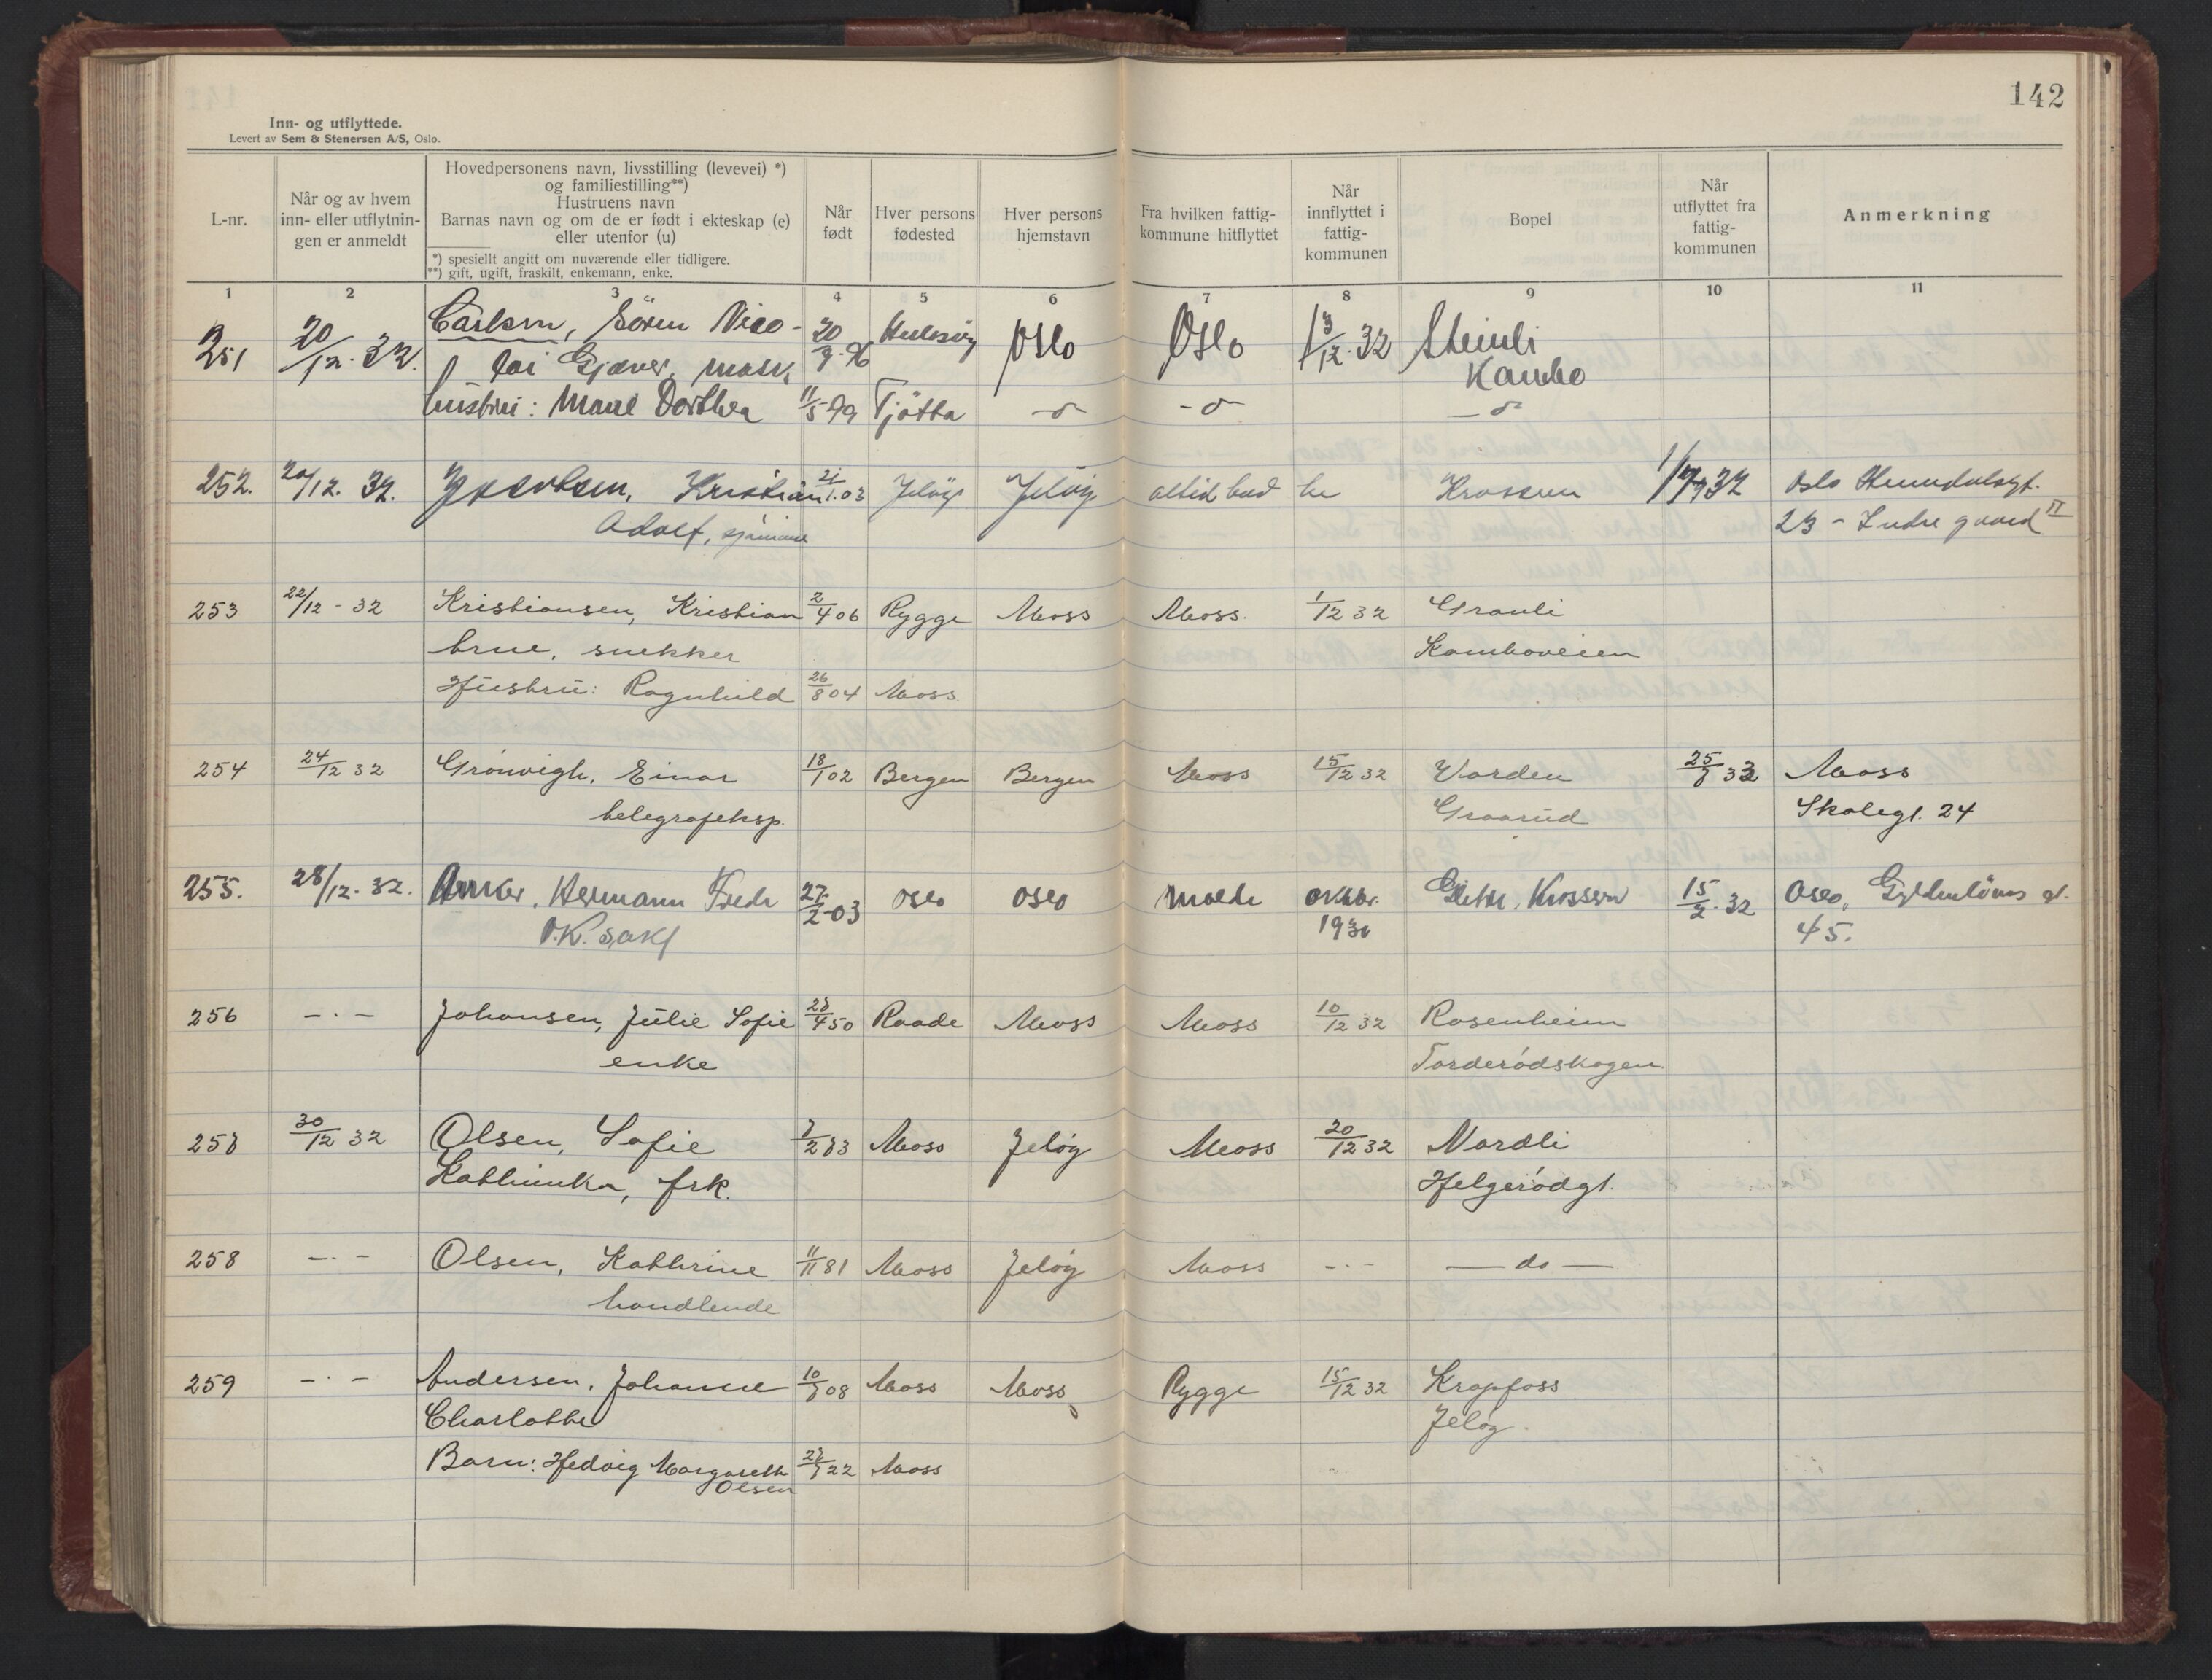 142
Inn- og utflyttede.
Levert av Sem & Stenersen A/S, Oslo.
L-nr.
Når og av hvem
inn- eller utflytnin-
gen er anmeldt
Hovedpersonens navn, livsstilling (levevei) *)
og familiestilling**)
Hustruens navn
Barnas navn og om de er født i ekteskap (e)
eller utenfor (u)
*) spesiellt angitt om nuværende eller tidligere.
**) gift, ugift, fraskilt, enkemann, enke.
Når
født
Hver persons
fødested
Hver persons
hjemstavn
Fra hvilken fattig-
kommune hitflyttet
Når
innflyttet i
fattig-
kommunen
Bopel
Når
utflyttet fra
fattig-
kommunen
Anmerkning
1 2 3 4 5 6 7 8 9 10 11
251 20/12. 32. Carlsen, Sören Nico- 20/9. 96 Oslo Oslo 13/12. 32 Steinli
lai Gjæver, mask. Kambo
hustru: Marie Dorthea 11/5 99 Tjötta -o- -o- -o-
252. 20/12. 32. Jacobsen, Kristian 21/1. 03 Jeløy Jeløy altid bod he Krossern 1/9 32 Oslo
Adolf, sjømann 23 - Indre gaard II
253 22/12 - 32 Kristiansen, Kristian 2/4 06 Rygge Moss Moss. 1/12 32 Granli
Arne, snekker Kamboveien
Hustru: Ragnhild 26/8 04 Moss
254 24/12 32 Grönvigh, Einar 18/1 02 Bergen Bergen Moss 15/12 32 Varden 25/7 33 Moss
telegrafeksp. Graarud Skolegt. 24
255. 28/12. 32. Anker, Hermann Fredr 27/2-03 Oslo Oslo Molde oktbr. Krossern 15/2. 32 Oslo, Gyldenløves gt.
O.R. sakf 1930 45.
256 -.- Johansen, Julie Sofie 27/4 50 Raade Moss Moss 10/12 32 Rosenheim
enke Torderödskogen
257 30/12 32 Olsen, Sofie 7/2 73 Moss Jeløy Moss 20/12 32 Nordli
Kathinka, frk. Helgerödgt.
258 -.- Olsen, Kathrine 11/11 81 Moss Jeløy Moss -.- — do —
handlende
259 -.- Andersen, Johanne 10/7 08 Moss Moss Rygge 15/12 32 Kropfoss
Charlotte Jeløy.
Barn: Hedvig Margareth 27/7 22 Moss
Olsen